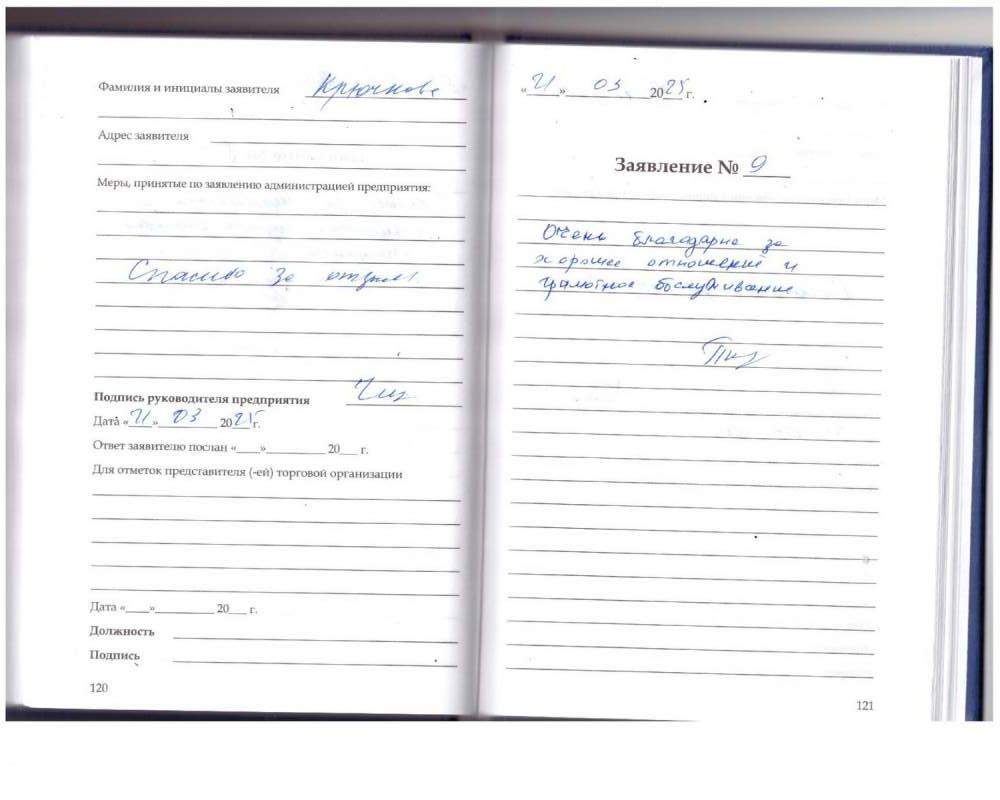 Фамилия и инициалы заявителя Крючкова
Адрес заявителя
Меры, принятые по заявлению администрацией предприятия:
Спасибо за отзыв!
Подпись руководителя предприятия
Дата «21» 03 2025 г.
Ответ заявителю послан «____»__________ 20___ г.
Для отметок представителя (-ей) торговой организации
Дата «____»__________ 20___ г.
Должность
Подпись
120
«21» 03 2025 г.
Заявление № 9
Очень благодарна за
хорошее отношение и
грамотное бослуживание
121